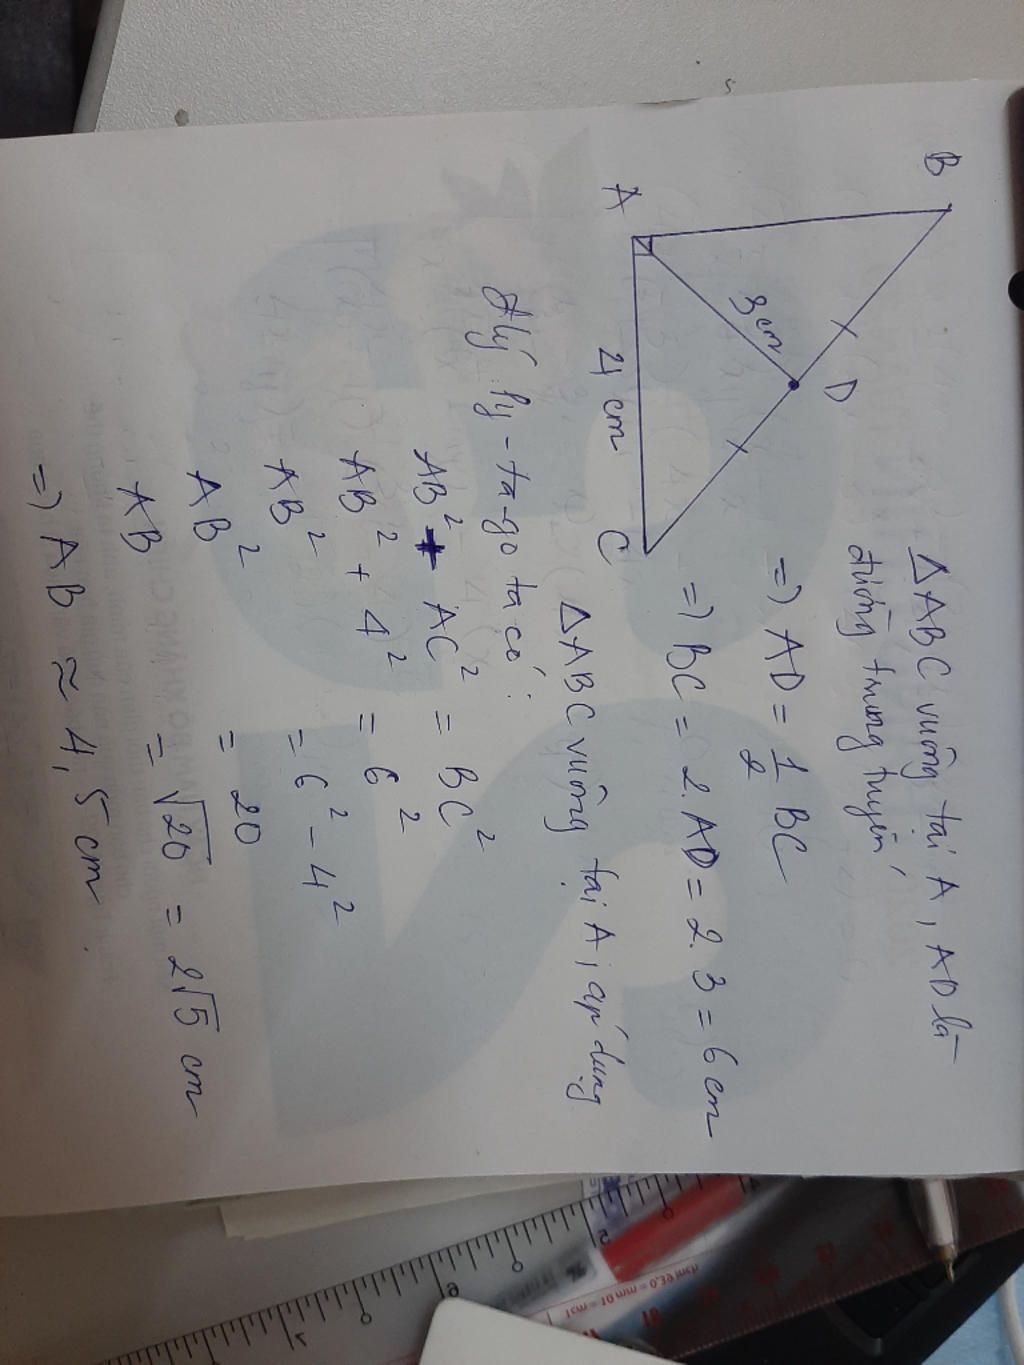 B
A
D
C
3cm
4 cm
ΔABC vuông tại A, AD là
đường trung tuyến
=) AD = 1/2 BC
=) BC = 2. AD = 2. 3 = 6 cm
ΔABC vuông tại A, áp dụng
đlý Py-ta-go ta có:
AB² + AC² = BC²
AB² + 4² = 6²
AB² = 6² - 4²
AB² = 20
AB = √20 = 2√5 cm
=) AB ≈ 4,5 cm.